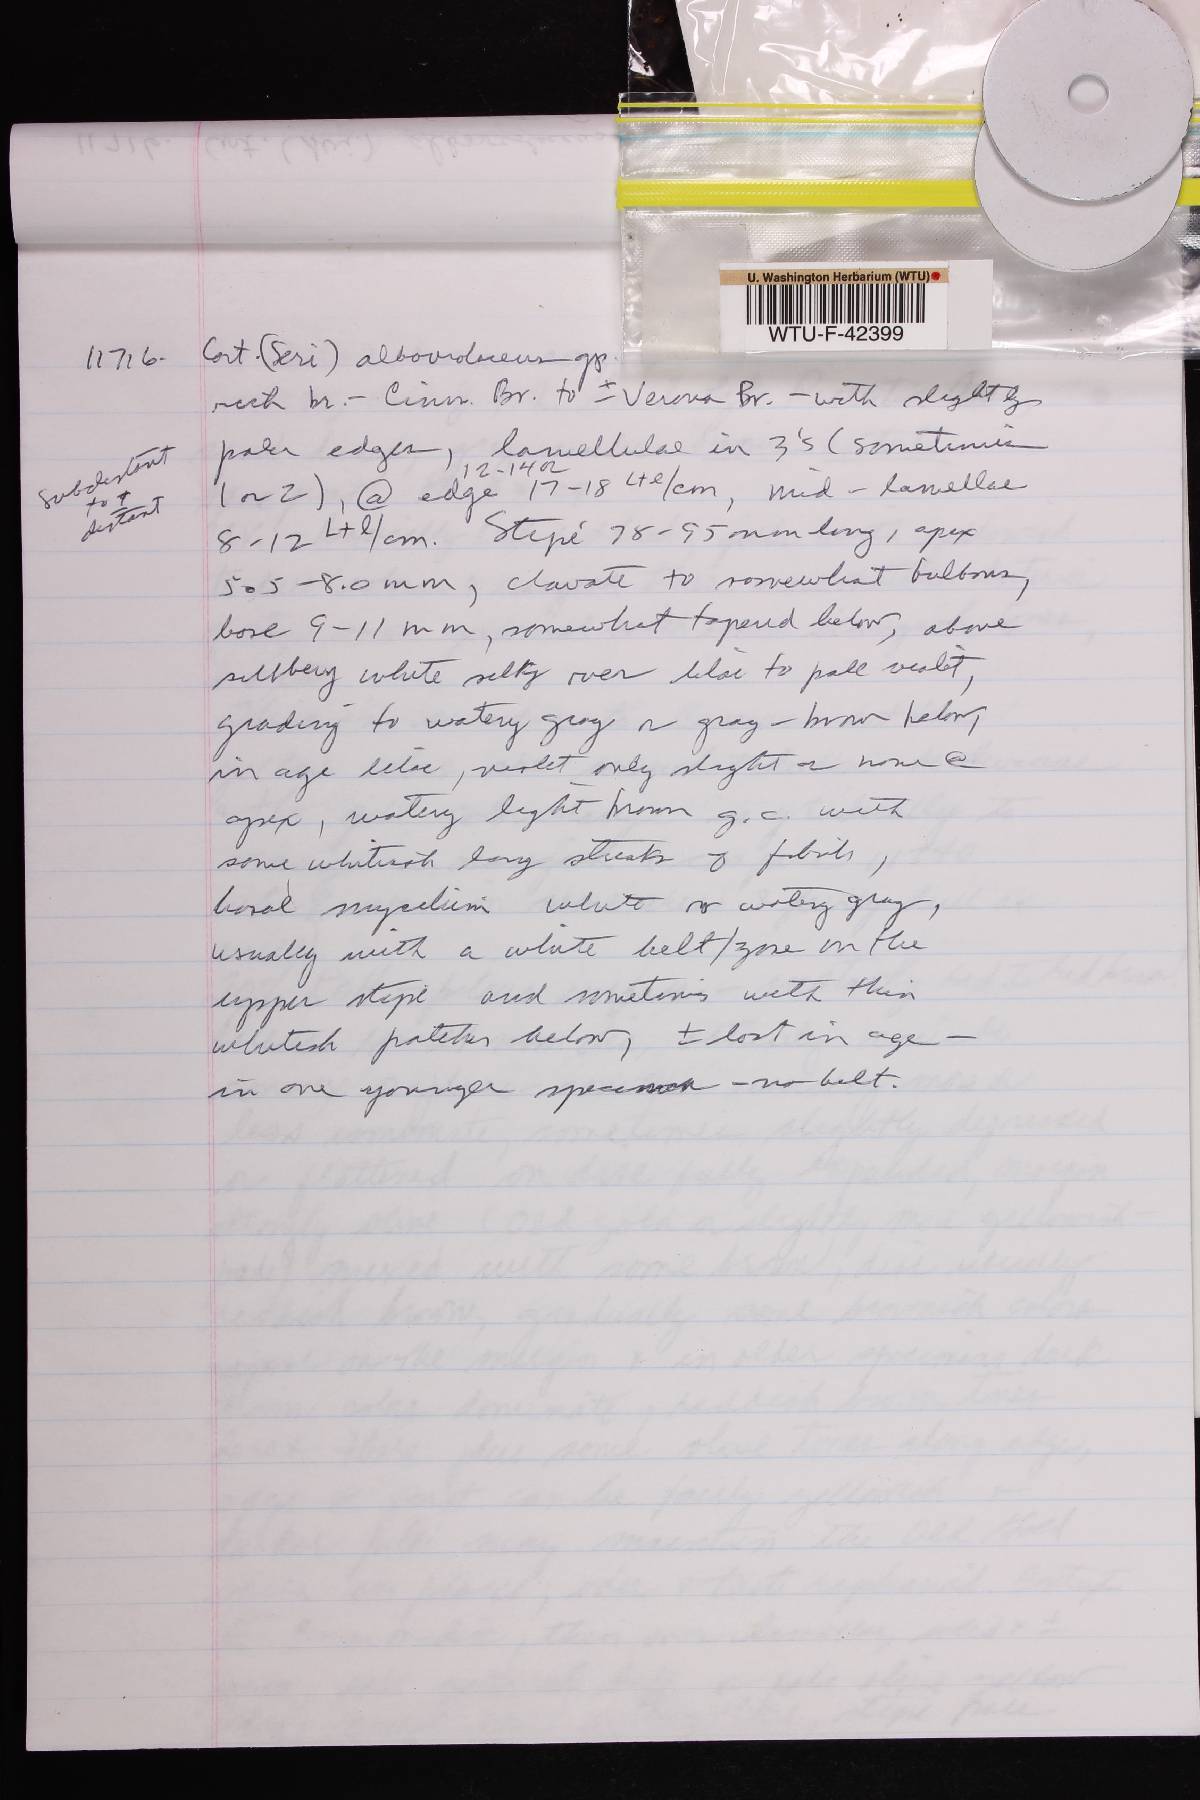 U. Washington Herbarium (WTU)
WTU-F-42399
11716. Cort. (Seri) alboviolaceus gp.
rich br. - Cinn. Br. to ± Verona Br. - with slightly
paler edges, lamellulae in 3's (sometimes
Subdistant to ± distant
12-14 or
1 or 2), @ edge 17-18 L+l/cm, mid-lamellae
8-12 L+l/cm. Stipe 78-95 mm long, apex
5.5-8.0 mm, clavate to somewhat bulbous,
base 9-11 mm, somewhat tapered below, above
silvery white silky over lilac to pale violet,
grading to watery gray or gray-brown below,
in age lilac, violet only slight or none @
apex, watery light brown g.c. with
some whitish long streaks of fibrils,
basal mycelium white or watery gray,
usually with a white belt/zone on the
upper stipe and sometimes with thin
whitish patches below, ± lost in age -
in one younger specimen - no belt.